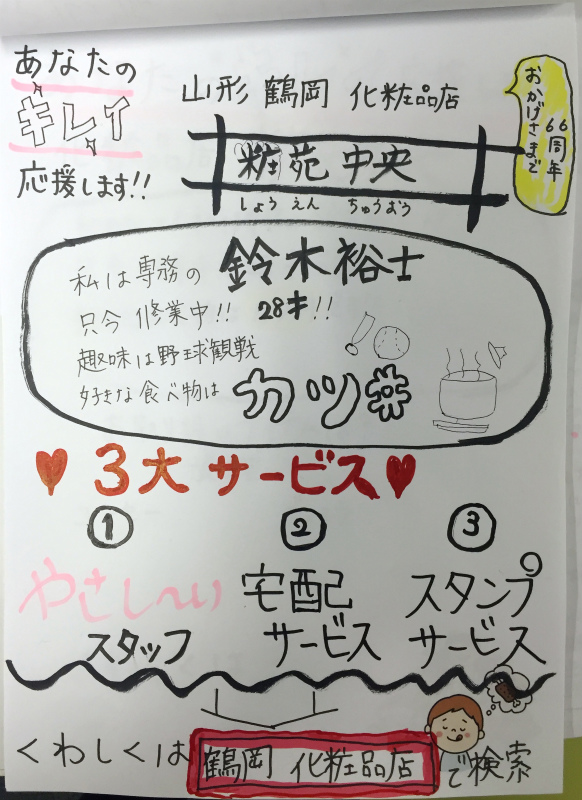 あなたの
キレイ
応援します!!
山形 鶴岡 化粧品店
粧苑 中央
しょう えん ちゅうおう
おかげさまで
66周年
私は専務の 鈴木裕士
只今 修業中!! 28才!!
趣味は野球観戦
好きな食べ物は カツ丼
♥ 3大 サービス ♥
① ② ③
やさし〜い
スタッフ
宅配
サービス
スタンプ
サービス
くわしくは 鶴岡 化粧品店 で検索